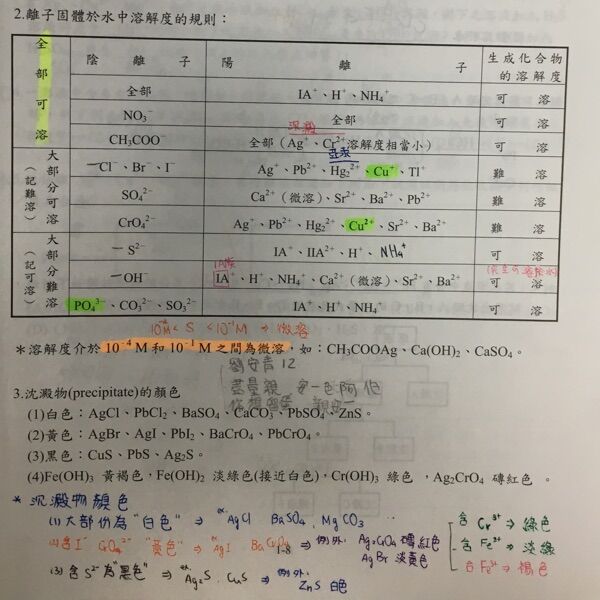 2.離子固體於水中溶解度的規則：
陰離子 陽離子 生成化合物的溶解度
全部可溶
全部 IA⁺、H⁺、NH₄⁺ 可溶
NO₃⁻ 全部 可溶
沉澱
CH₃COO⁻ 全部（Ag⁺、Cr²⁺溶解度相當小） 可溶
亞汞
大部分可溶（記難溶）
Cl⁻、Br⁻、I⁻ Ag⁺、Pb²⁺、Hg₂²⁺、Cu⁺、Tl⁺ 難溶
SO₄²⁻ Ca²⁺（微溶）、Sr²⁺、Ba²⁺、Pb²⁺ 難溶
CrO₄²⁻ Ag⁺、Pb²⁺、Hg₂²⁺、Cu²⁺、Sr²⁺、Ba²⁺ 難溶
大部分難溶（記可溶）
S²⁻ IA⁺、IIA²⁺、H⁺、NH₄⁺ 可溶
IA族
OH⁻ IA⁺、H⁺、NH₄⁺、Ca²⁺（微溶）、Sr²⁺、Ba²⁺ 可溶
PO₄³⁻、CO₃²⁻、SO₃²⁻ IA⁺、H⁺、NH₄⁺ 可溶
10⁻⁴M < S < 10⁻¹M ⇒ 微溶
＊溶解度介於 10⁻⁴ M 和 10⁻¹ M 之間為微溶，如：CH₃COOAg、Ca(OH)₂、CaSO₄。
劉安青 12
3.沈澱物(precipitate)的顏色
(1)白色：AgCl、PbCl₂、BaSO₄、CaCO₃、PbSO₄、ZnS。
(2)黃色：AgBr、AgI、PbI₂、BaCrO₄、PbCrO₄。
(3)黑色：CuS、PbS、Ag₂S。
(4)Fe(OH)₃ 黃褐色，Fe(OH)₂ 淡綠色(接近白色)，Cr(OH)₃ 綠色 ，Ag₂CrO₄ 磚紅色 。
* 沉澱物顏色
(1) 大部份為"白色" ⇒ ex. AgCl BaSO₄, MgCO₃ ...
(2) 含 I⁻ CrO₄²⁻ "黃色" ⇒ ex. AgI BaCrO₄ ⇒ 例外: Ag₂CrO₄ 磚紅色
AgBr 淡黃色
1-8
(3) 含 S²⁻ 為"黑色" ⇒ ex. Ag₂S, CuS ⇒ 例外: ZnS 白色
含 Cr³⁺ ⇒ 綠色
含 Fe²⁺ ⇒ 淡綠
含 Fe³⁺ ⇒ 褐色